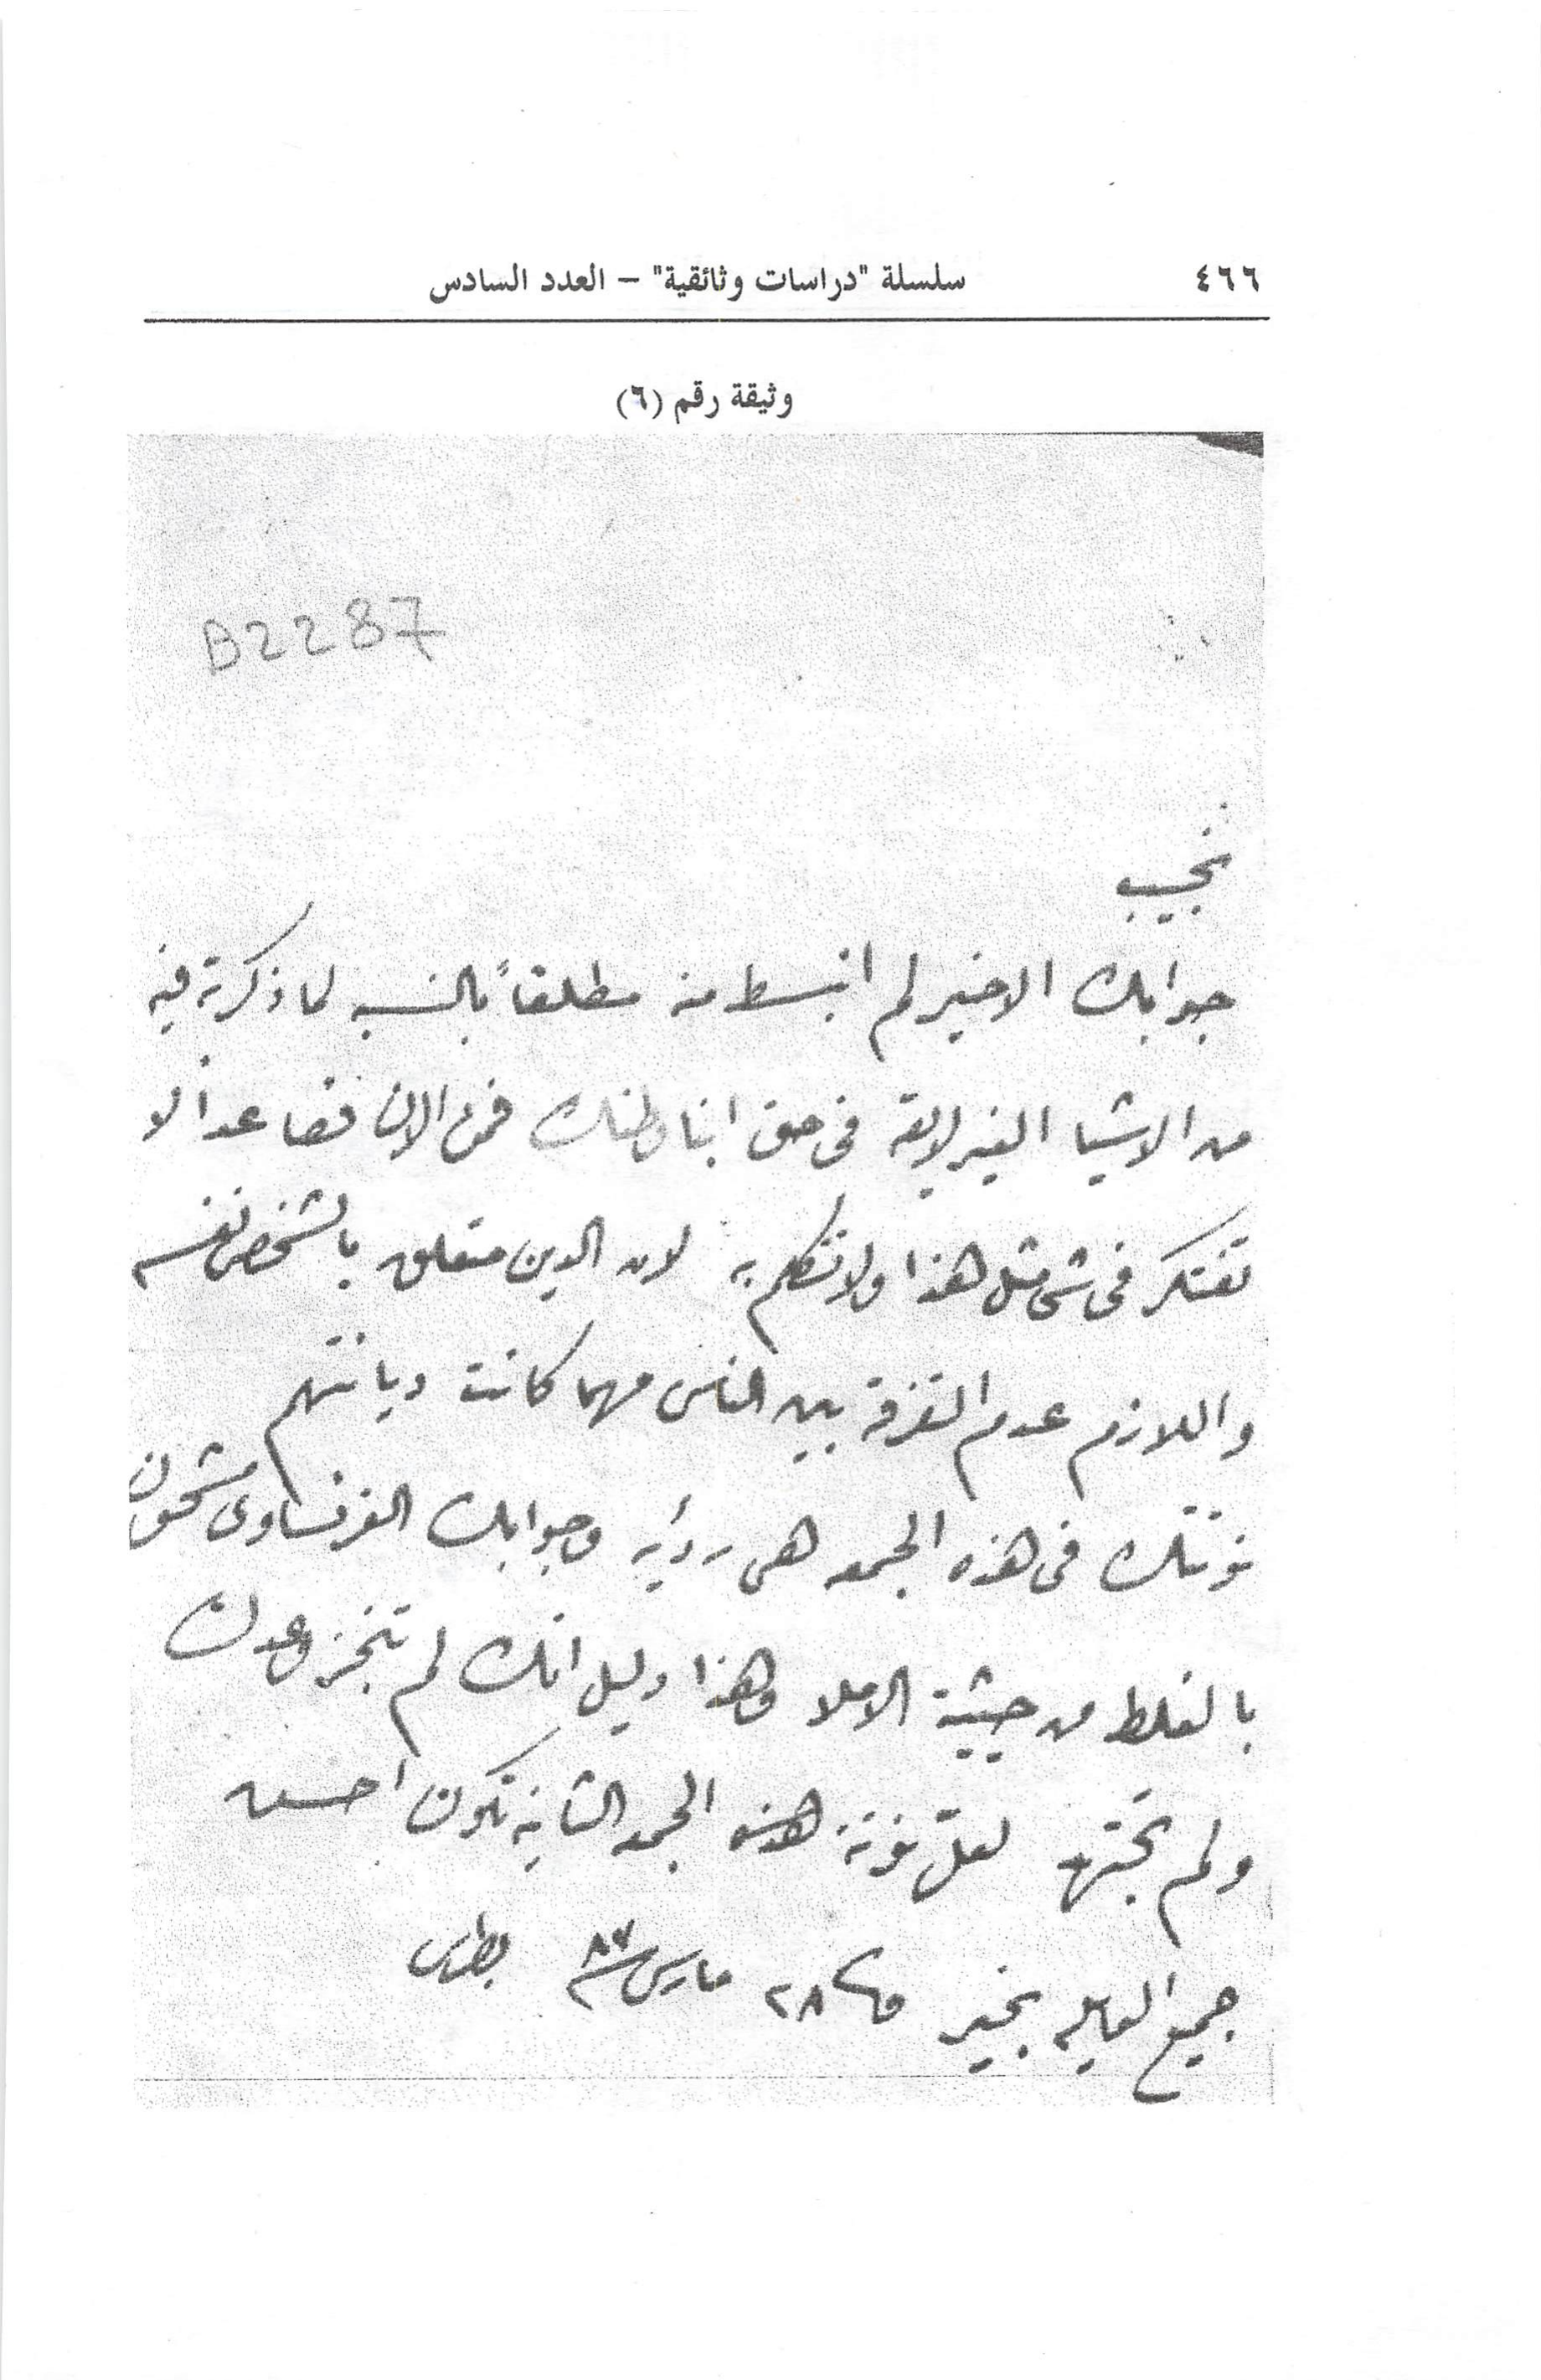 ٤٦٦ سلسلة "دراسات وثائقية" – العدد السادس
وثيقة رقم (٦)
B2287
نجيب
جوابك الاخير لم انبسط منه مطلقاً بالنسبه لما ذكرته فيه
من الاشيا الغير لايقه فى حق ابنا وطنك فمن الان فصاعداً لا
تفتكر فى شى مثل هذا ولا تتكلم به لان الدين متعلق بالشخص نفسه
واللازم عدم التفرقة بين الناس مهما كانت ديانتهم
نوتتك فى هذه الجمعه هى رديه وجوابك الفرنساوى مشحون
بالغلط من حيثية الاملا وهذا دليل انك لم تنجز وعدك
ولم تجتهد لعل نوتة هذه الجمعه الثانيه تكون احسن
جميع العايله بخير فى ٢٨ مارس سنة ٨٧ بطرس